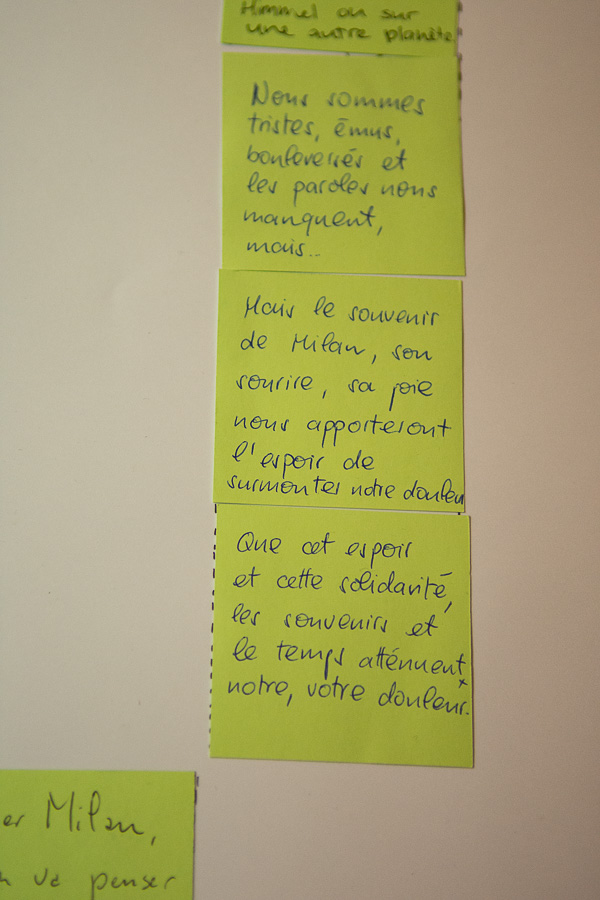 Himmel ou sur
une autre planète.
Nous sommes
tristes, émus,
bouleversés et
les paroles nous
manquent,
mais..
Mais le souvenir
de Milan, son
sourire, sa joie
nous apporteront
l'espoir de
surmonter notre douleur
Que cet espoir
et cette solidarité,
les souvenirs et
le temps atténuent
notre, votre douleur.
Milan,
va penser